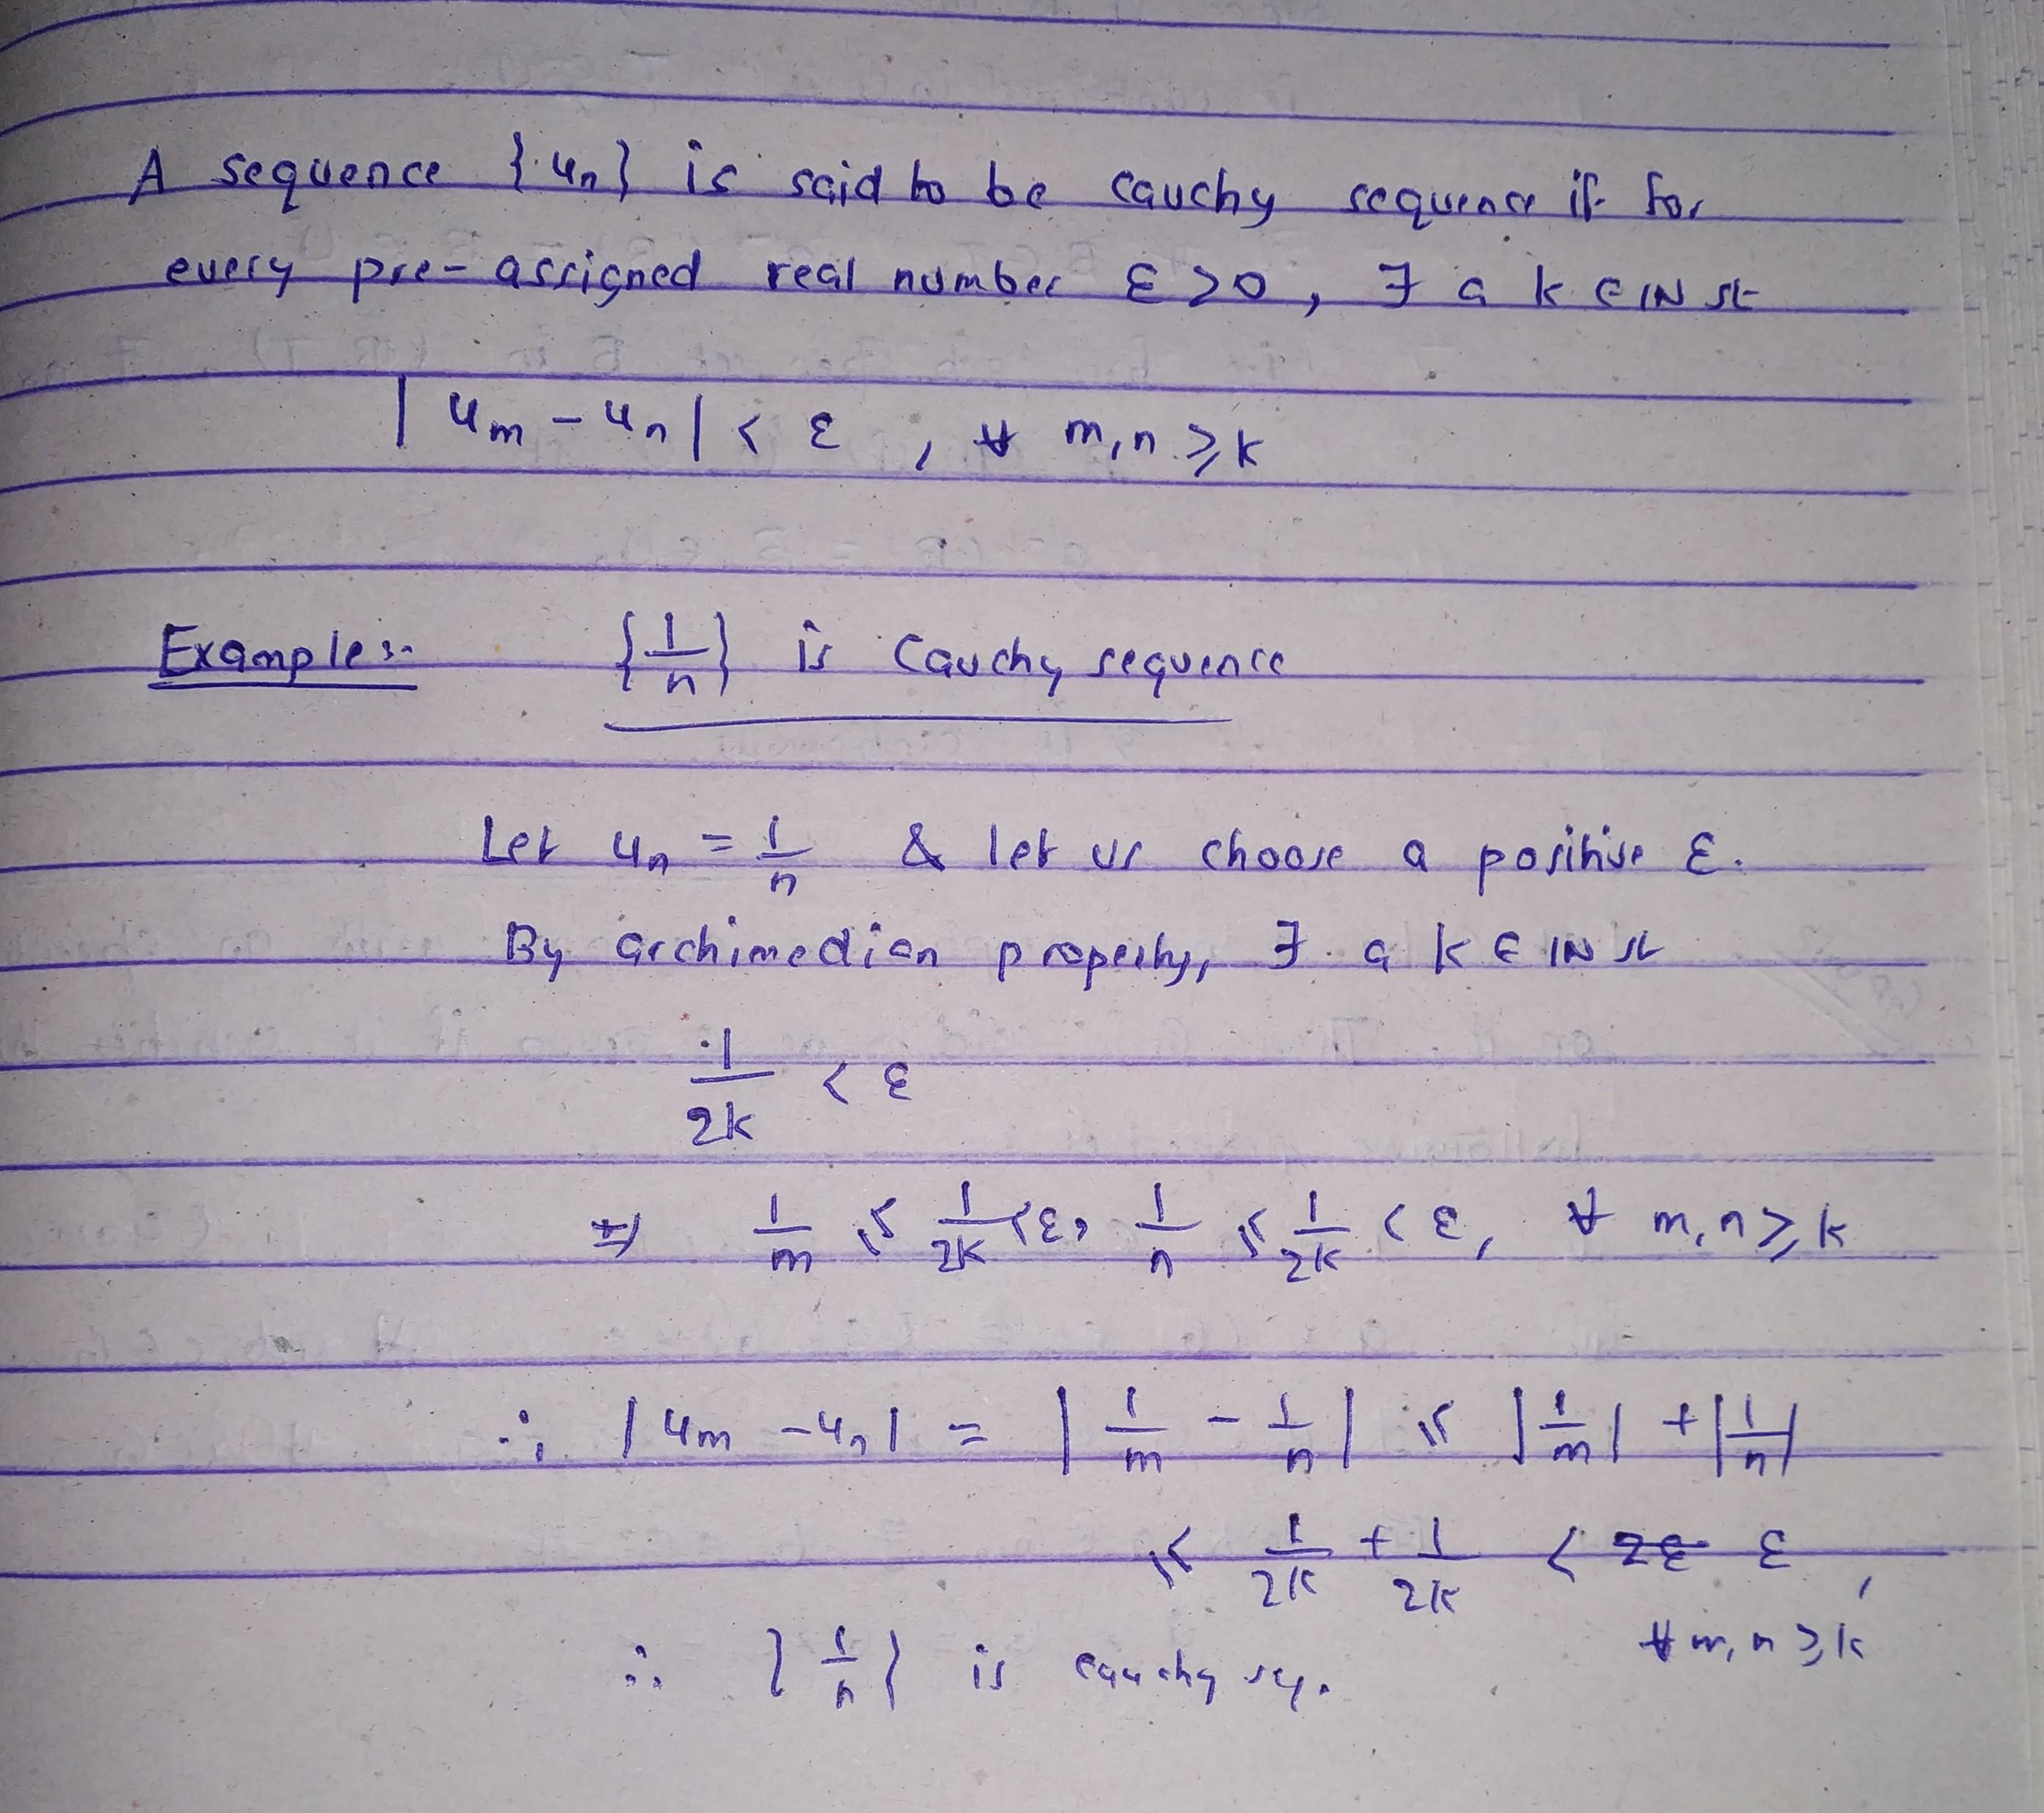 A sequence {un} is said to be Cauchy sequence if for
every pre-assigned real number ε > 0, ∃ a k ∈ ℕ st
|um - un| < ε , ∀ m,n ≥ k
Example:- {1/n} is Cauchy sequence
Let un = 1/n & let us choose a positive ε.
By archimedian property, ∃ a k ∈ ℕ st
1/2k < ε
⇒ 1/m ≤ 1/2k < ε, 1/n ≤ 1/2k < ε, ∀ m,n ≥ k
∴ |um - un| = |1/m - 1/n| ≤ |1/m| + |1/n|
≤ 1/2k + 1/2k < 2ε ε ,
∀ m,n ≥ k
∴ {1/n} is cauchy seq.